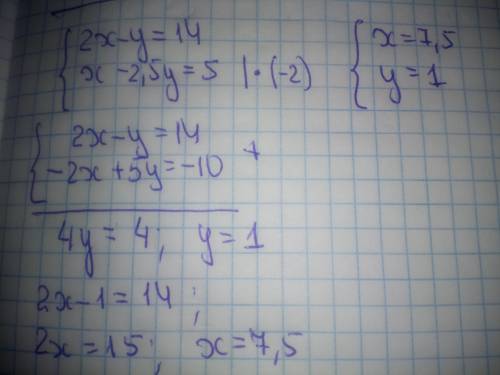 { 2x-y=14
x-2,5y=5 |·(-2)
{ x=7,5
y=1
{ 2x-y=14
-2x+5y=-10 +
4y=4; y=1
2x-1=14;
2x=15; x=7,5